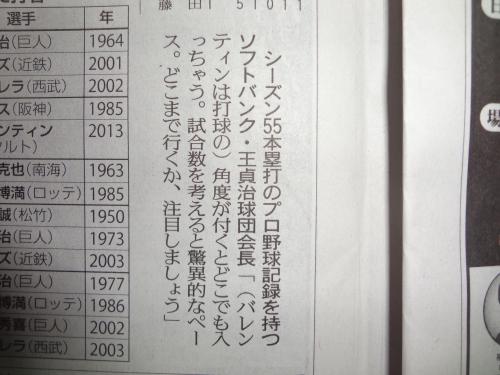 選手 年
治(巨人) 1964
ズ(近鉄) 2001
レラ(西武) 2002
ス(阪神) 1985
ンティン 2013
クルト)
克也(南海) 1963
博満(ロッテ) 1985
誠(松竹) 1950
治(巨人) 1973
ズ(近鉄) 2003
治(巨人) 1977
博満(ロッテ) 1986
秀喜(巨人) 2002
レラ(西武) 2003
藤田
シーズン55本塁打のプロ野球記録を持つ
ソフトバンク・王貞治球団会長「(バレン
ティンは打球の)角度が付くとどこでも入
っちゃう。試合数を考えると驚異的なペー
ス。どこまで行くか、注目しましょう」
場